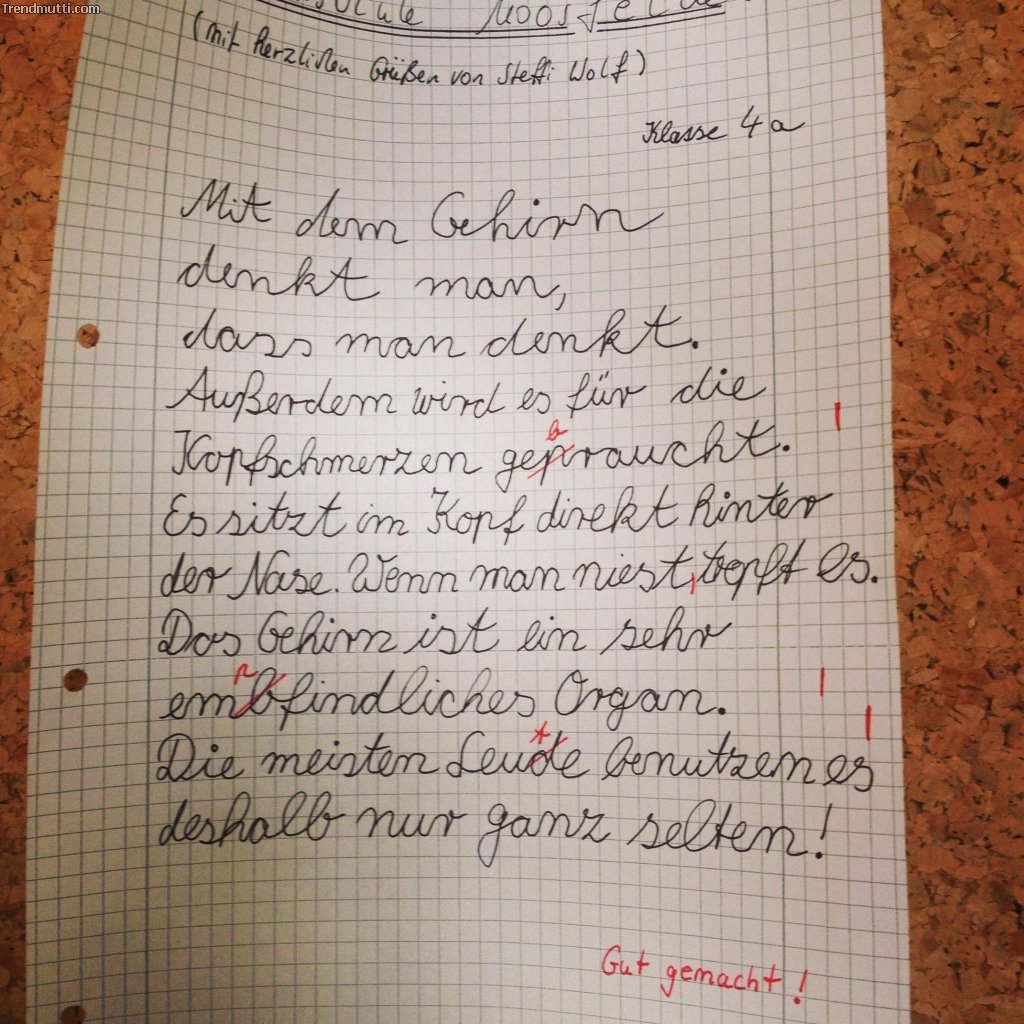 Trendmutti.com
(mit herzlichen Grüßen von Steffi Wolf)
Klasse 4a
Mit dem Gehirn
denkt man,
dass man denkt.
Außerdem wird es für die
b
Kopfschmerzen gepraucht.
Es sitzt im Kopf direkt hinter
der Nase. Wenn man niest, tropft es.
Das Gehirn ist ein sehr
p
embfindliches Organ.
t
Die meisten Leude benutzem es
deshalb nur ganz selten!
Gut gemacht!